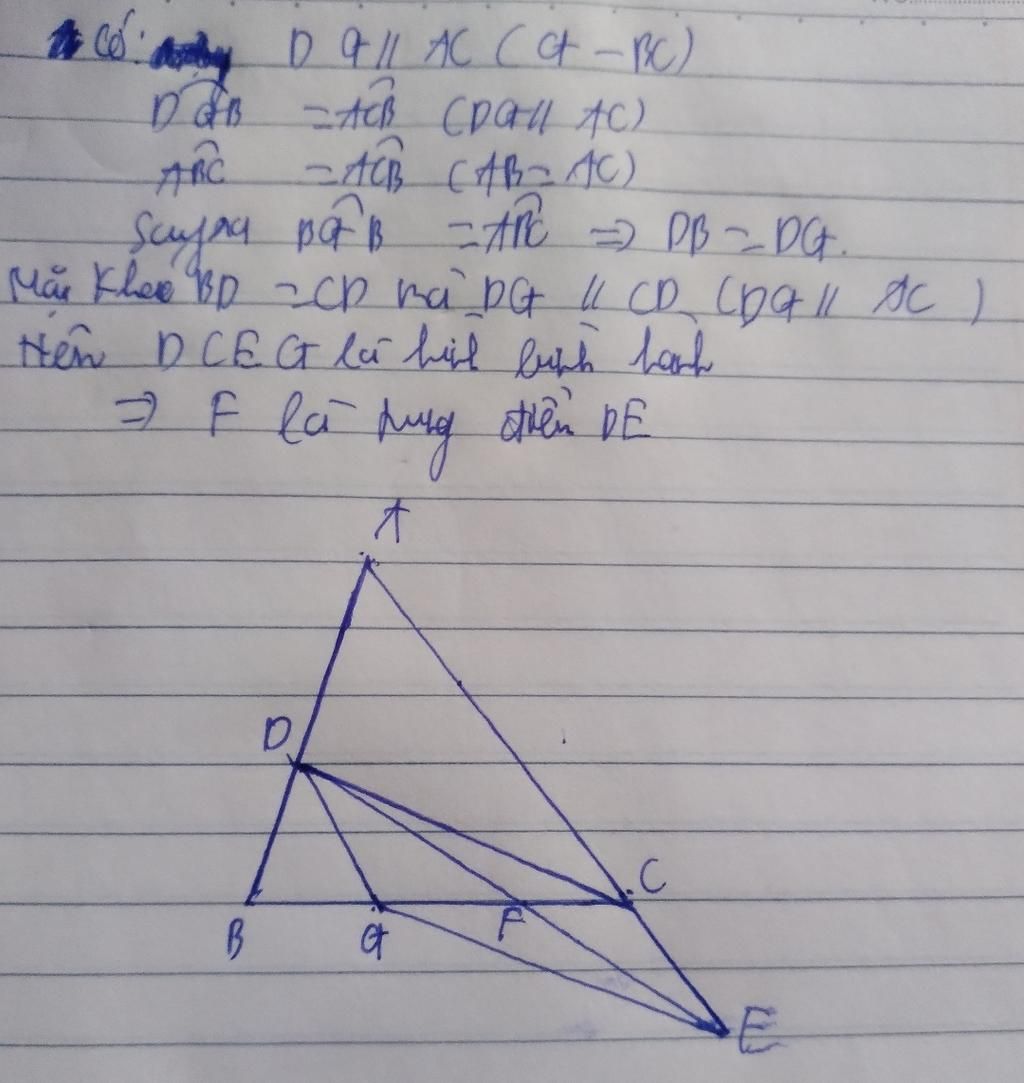 Có: DG // AC (G - BC)
DGB = ACB (DG // AC)
ABC = ACB (AB = AC)
Suy ra BGB = ABC => DB = DG.
Mặt Khác BD = CD mà DG // CD (DG // AC)
Nên DCEG là hình bình hành
=> F là trung điểm DE
A
D
C
B G F
E